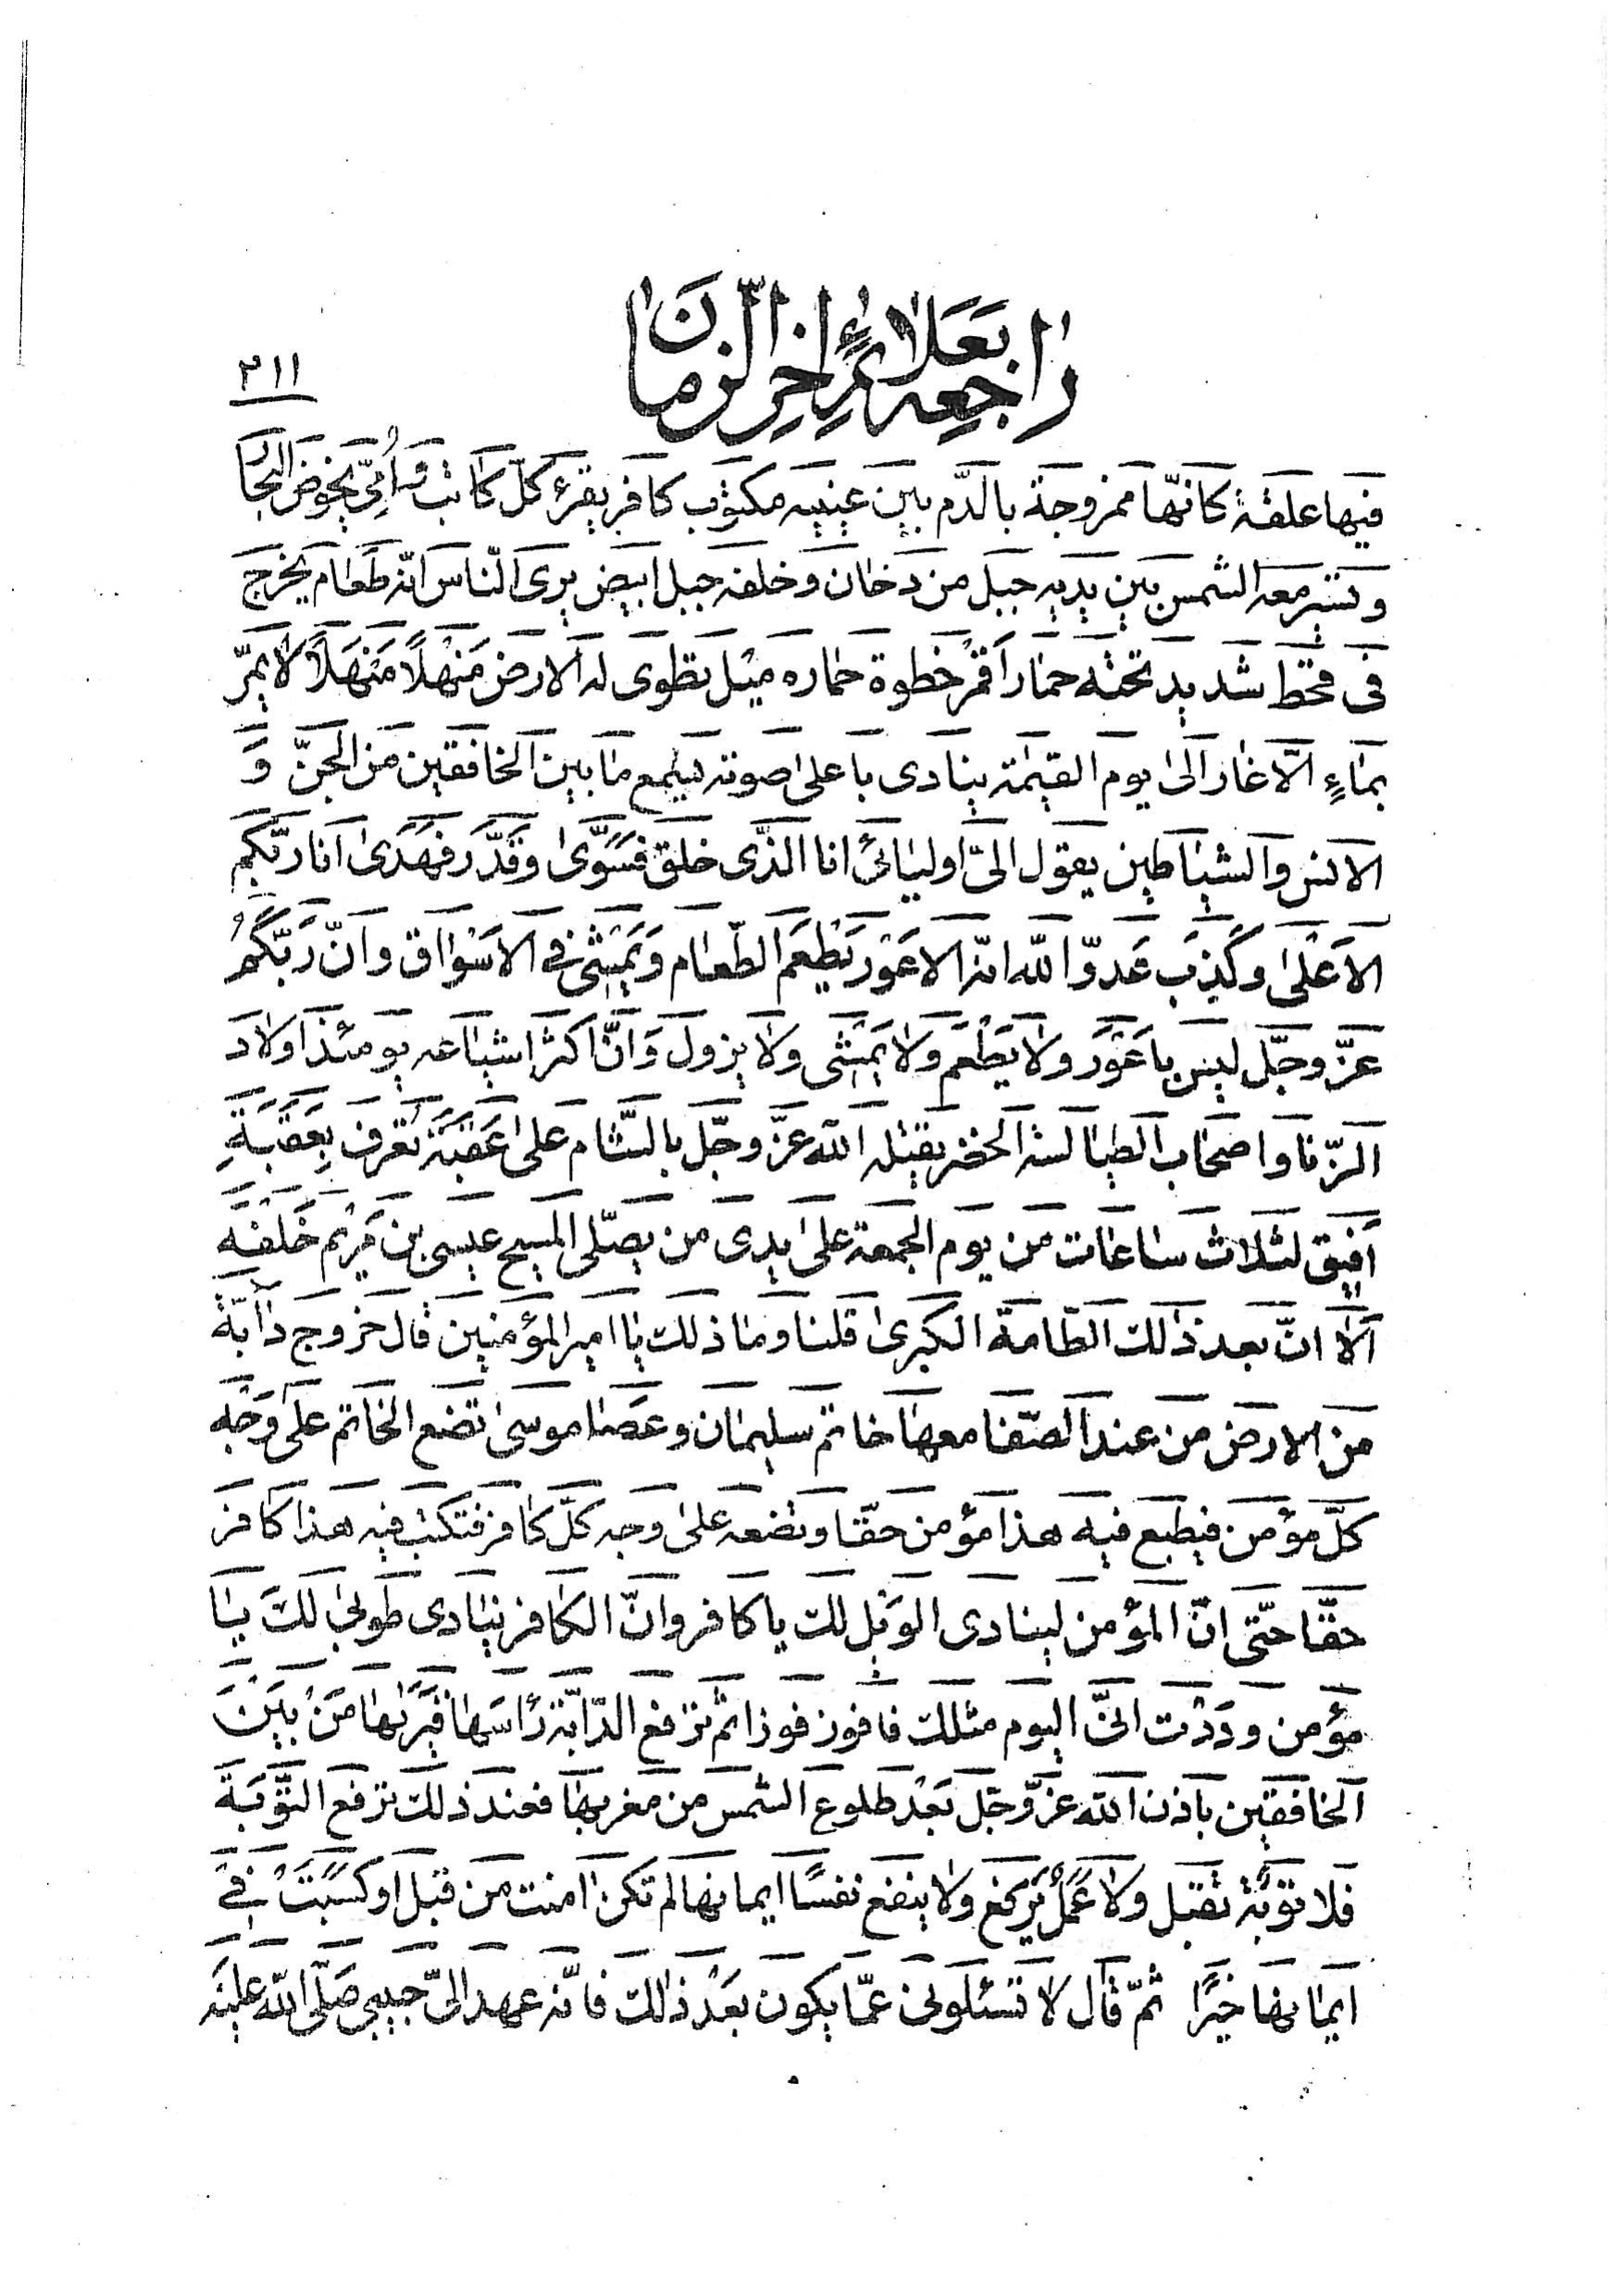 راجعه بعلائم اخر الزمان
۳۱۱
فيها علقة كانّها ممزوجة بالدّم بين عينيه مكتوب كافر يقرء كلّ كاتب و اُمّي يخوض البحار
و تسير معه الشمس بين يديه جبل من دخان و خلفه جبل ابيض يرى النّاس انّه طعام يخرج
في قحط شديد تحته حمار اقمر خطوة حماره ميل تطوى له الارض مَنهَلًا مَنهَلًا لا يمرّ
بماءٍ الّا غار الى يوم القيمة ينادى باعلى صوته يسمع ما بين الخافقين من الجنّ وَ
الانس والشياطين يقول الىّ اوليائى انا الذّى خلق فسوّى و قدّر فهدى انا ربّكم
الاَعلى و كذِبَ عدوّ الله انّه الاعوَر يَطعَم الطّعام وَ يَمشى فى الاَسواق و انّ رَبّكُم
عزّ و جلّ ليس باَعوَر و لا يَطعَم و لا يَمشى و لا يزول وَ انّ اكثر اشياعه يومئذ اولاد
الزّنا و اصحاب الطيالسة الخضر يقتله الله عزّ و جلّ بالشّام على عَقَبَة تُعرف بِعَقَبَةِ
اَفيق لثلاث ساعات من يوم الجمعة على يدى من يصلّى المسيح عيسى بن مَريَم خَلفَه
اَلا انّ بعد ذلك الطّامة الكبرى قلنا و ما ذلك يا امير المؤمنين قال خروج دابّة
من الارض من عند الصّفا معها خاتم سليمان و عَصا موسى تضع الخاتم على وَجه
كلّ مؤمن فيطبع فيه هذا مؤمن حقّا و تضعه على وجه كلّ كافر فتكتب فيه هذا كافر
حقّا حتّى انّ المؤمن لينادى الويل لك يا كافر و انّ الكافر ينادى طوبى لك يا
مؤمن و دَدْت انّى اليوم مثلك فافوز فوزا ثم ترفع الدّابّة رَأسَها فيَرٰيها مَن بَينَ
الخافقين باذن الله عزّ و جلّ بَعْد طلوع الشمس من مغربها فعند ذلك ترفع التّوبَة
فلا توبَة تقبل و لا عَمَلٌ يُرفع و لا ينفع نفسًا ايمانها لم تكن امنت من قبل او كسَبَتْ فى
ايمانها خيرًا ثمّ قال لا تسئلونى عمّا يكون بَعْد ذلك فانّه عهد الىّ حبيبى صَلّى الله عليه